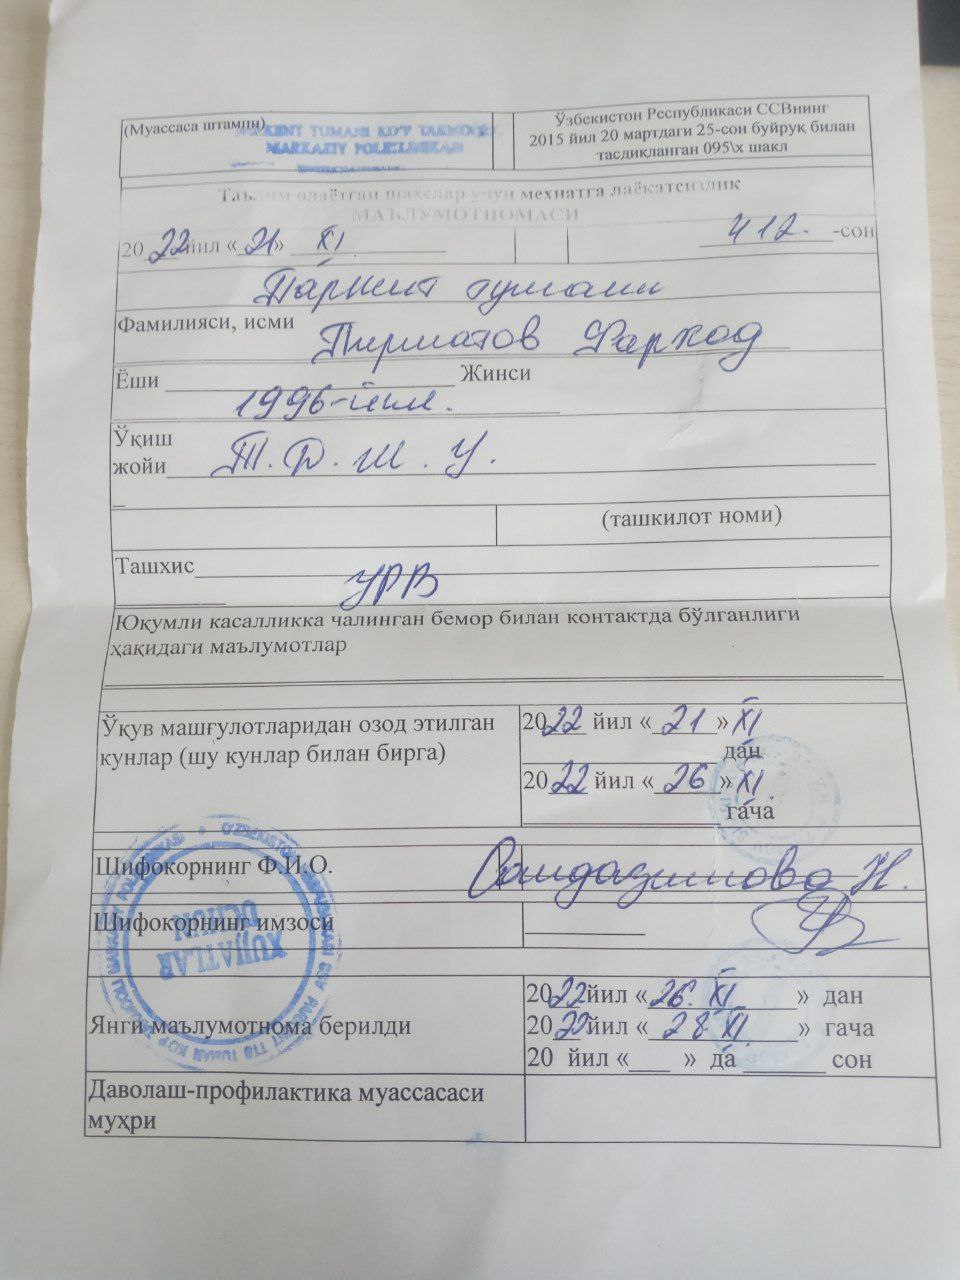 (Муассаса штампи)
TUMANI KO'P TARMOQLI
MARKAZIY POLIKLINIKASI
Ўзбекистон Республикаси ССВнинг
2015 йил 20 мартдаги 25-сон буйруқ билан
тасдиқланган 095\х шакл
Таълим олаётган шахслар учун меҳнатга лаёқатсизлик
МАЪЛУМОТНОМАСИ
2022 йил «21» XI
412-сон
Паркент тумани
Фамилияси, исми Пирматов Фарход
Ёши Жинси
1996-йил.
Ўқиш
жойи Т.Д.Ш.У.
(ташкилот номи)
Ташхис
УРВ
Юқумли касалликка чалинган бемор билан контактда бўлганлиги
ҳақидаги маълумотлар
Ўқув машғулотларидан озод этилган
кунлар (шу кунлар билан бирга)
2022 йил «21» XI
дан
2022 йил «26» XI
гача
Шифокорнинг Ф.И.О.
Н.
Шифокорнинг имзоси
XUJJATLAR
UCHUN
Янги маълумотнома берилди
2022 йил «26. XI» дан
2022 йил «28 XI» гача
20 йил « » да сон
Даволаш-профилактика муассасаси
муҳри